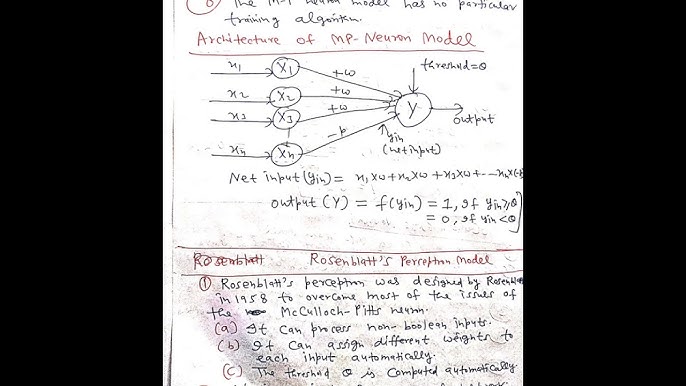 ⑥ The M-P neuron model has no particular
training algorithm.
Architecture of MP-Neuron Model
x1 X1 +w threshold=θ
x2 X2 +w
x3 X3 +w Y output
xn Xn -p yin
(net input)
Net input (yin) = x1xw + x2xw + x3xw + --- xnx(-p)
output (Y) = f(yin) = 1, if yin≥θ
= 0, if yin<θ
Rosenblatt Rosenblatt's Perceptron Model
① Rosenblatt's perceptron was designed by Rosenblatt
in 1958 to overcome most of the issues of
the McCulloch-Pitts neuron.
(a) It can process non-boolean inputs.
(b) It can assign different weights to
each input automatically.
(c) The threshold θ is computed automatically